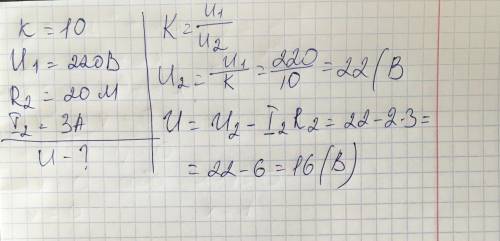 k = 10
U1 = 220В
R2 = 20 М
I2 = 3А
U - ?
K = U1/U2
U2 = U1/K = 220/10 = 22 (В
U = U2 - I2R2 = 22 - 2·3 =
= 22 - 6 = 16 (В)